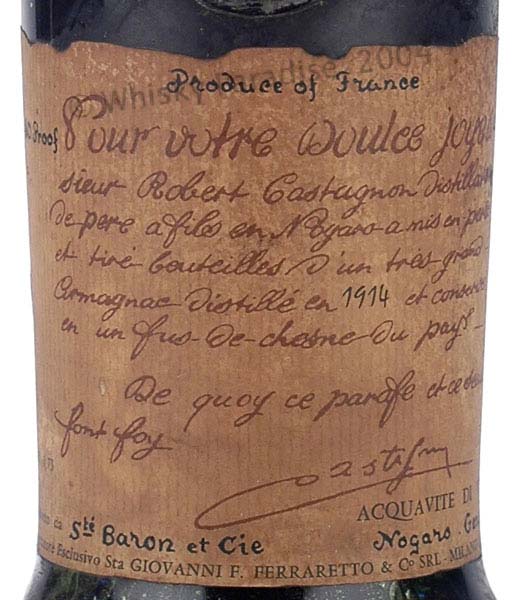 Whisky Paradise 2004
Produce of France
Proof
Pour votre doulce joya
sieur Robert Castagnon distillan
de pere a fils en Nogaro a mis en
et tiré bouteilles d'un très grand
Armagnac distillé en 1914 et conserve
en un fus-de-chesne du pays_
De quoy ce parafe et ce
font foy
Castagnon
ACQUAVITE DI
Sté Baron et Cie
Nogaro
Esclusivo Sta GIOVANNI F. FERRARETTO & Co SRL - MILANO